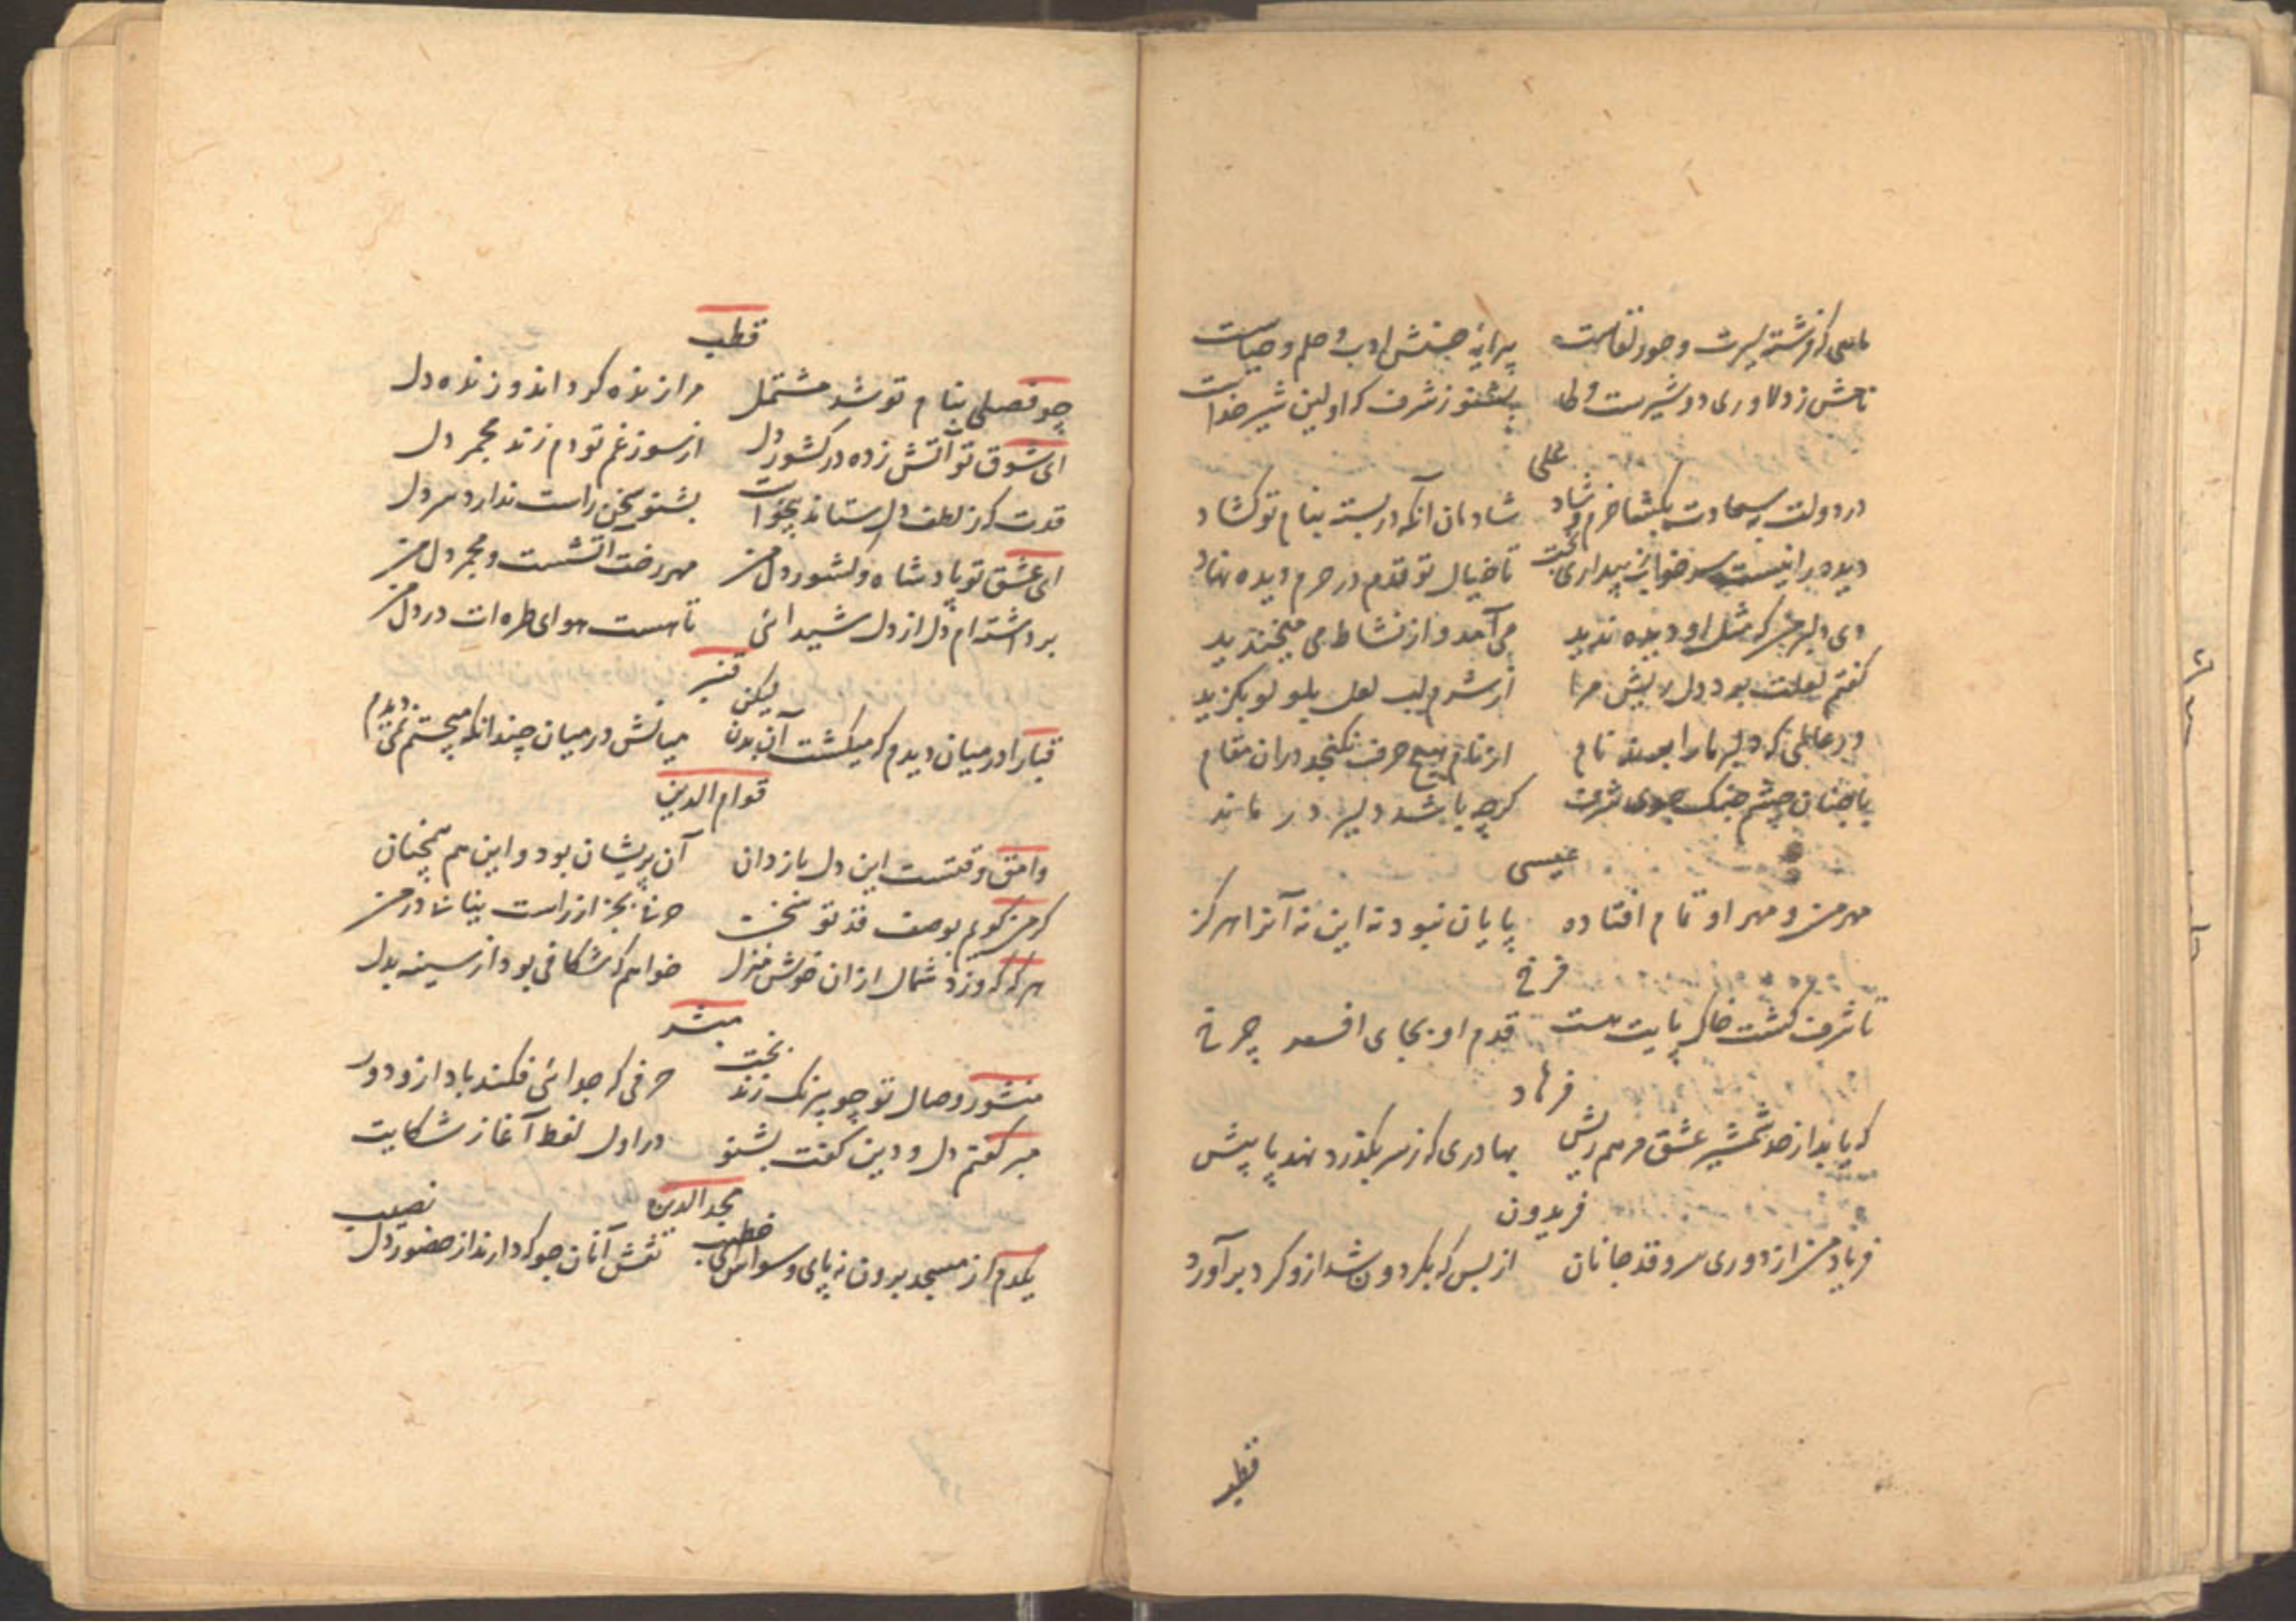 ماهی که فرشته سیرت و حور لقاست پیرایهٔ جنبش ادب و حلم و حیاست
نامش ز دلاوری دو شیرست ولی بشنو ز شرف که اولین شیر خداست
علی
در دولت و سعادت بکشا خرم و شاد شادمان آنکه در بسته بنام تو کشاد
دیده را نیست سر خواب ز بیداری بخت تا خیال تو قدم در حرم دیده نهاد
دی دلبر من که مثل او دیده ندید می آمد و از نشاط می میخندید
گفتم لعلت بود دل ریش مرا از شرم لب لعل بلولو بگزید
در عالمی که دلبر ما را بود نام از نام هیچ حرف نگنجد دران مقام
با چنان چشم گرچه باشد دلیر در ماند
عیسی
مهر من و مهر او تمام افتاده پایان نبود نه این نه آنرا هرگز
فرخ
تا شرف گشت خاک پایت هست قدم او بجای افسر چرخ
فرهاد
که یابد از صد شمشیر عشق مرهم ریش بهادری که ز سر بگذرد نهد پا پیش
فریدون
فریاد من از دوری سرو قد جانان از بس که بگردون شد ازو گرد برآورد
قطب
قطب
چو فصلی بنام تو شد مشتمل مرا زنده کرد اندو زنده دل
ای شوق تو آتش زده در کشور دل از سوز غم تو دم زند مجمر دل
قدت که ز لطف دل ستاند بخواست بشنو سخن راست ندارد سر دل
ای عشق تو پادشاه و کشور دل من مهر رخت آتشست و مجمر دل من
برداشته‌ام دل از دل شیدائی تا هست هوای طره‌ات در دل من
قنبر
قبا را در میان دیدم که میگشت آن بدن لیکن میانش در میان چندانکه میجستم نمی دیدم
قوام الدین
وامق وقتست این دل باز دان آن پریشان بود و این هم همچنان
گر من گویم بوصف قد تو سخن حرفا بجز از راست بیانا در من
هر گه که وزد شمال از ان خوش منزل خواهم که شکافی بود از سینه بدل
مبشر
منشور وصال تو چو بیرنگ زند بخت حرفی که جدائی فکند باد ازو دور
میر گفتم دل و دین گفت بشنو در اول لفط آغاز شکایت
مجد الدین
یکدم از مسجد برون نه پای وسواس ای خطیب نقش آنان جو که دارند از حضور دل نصیب